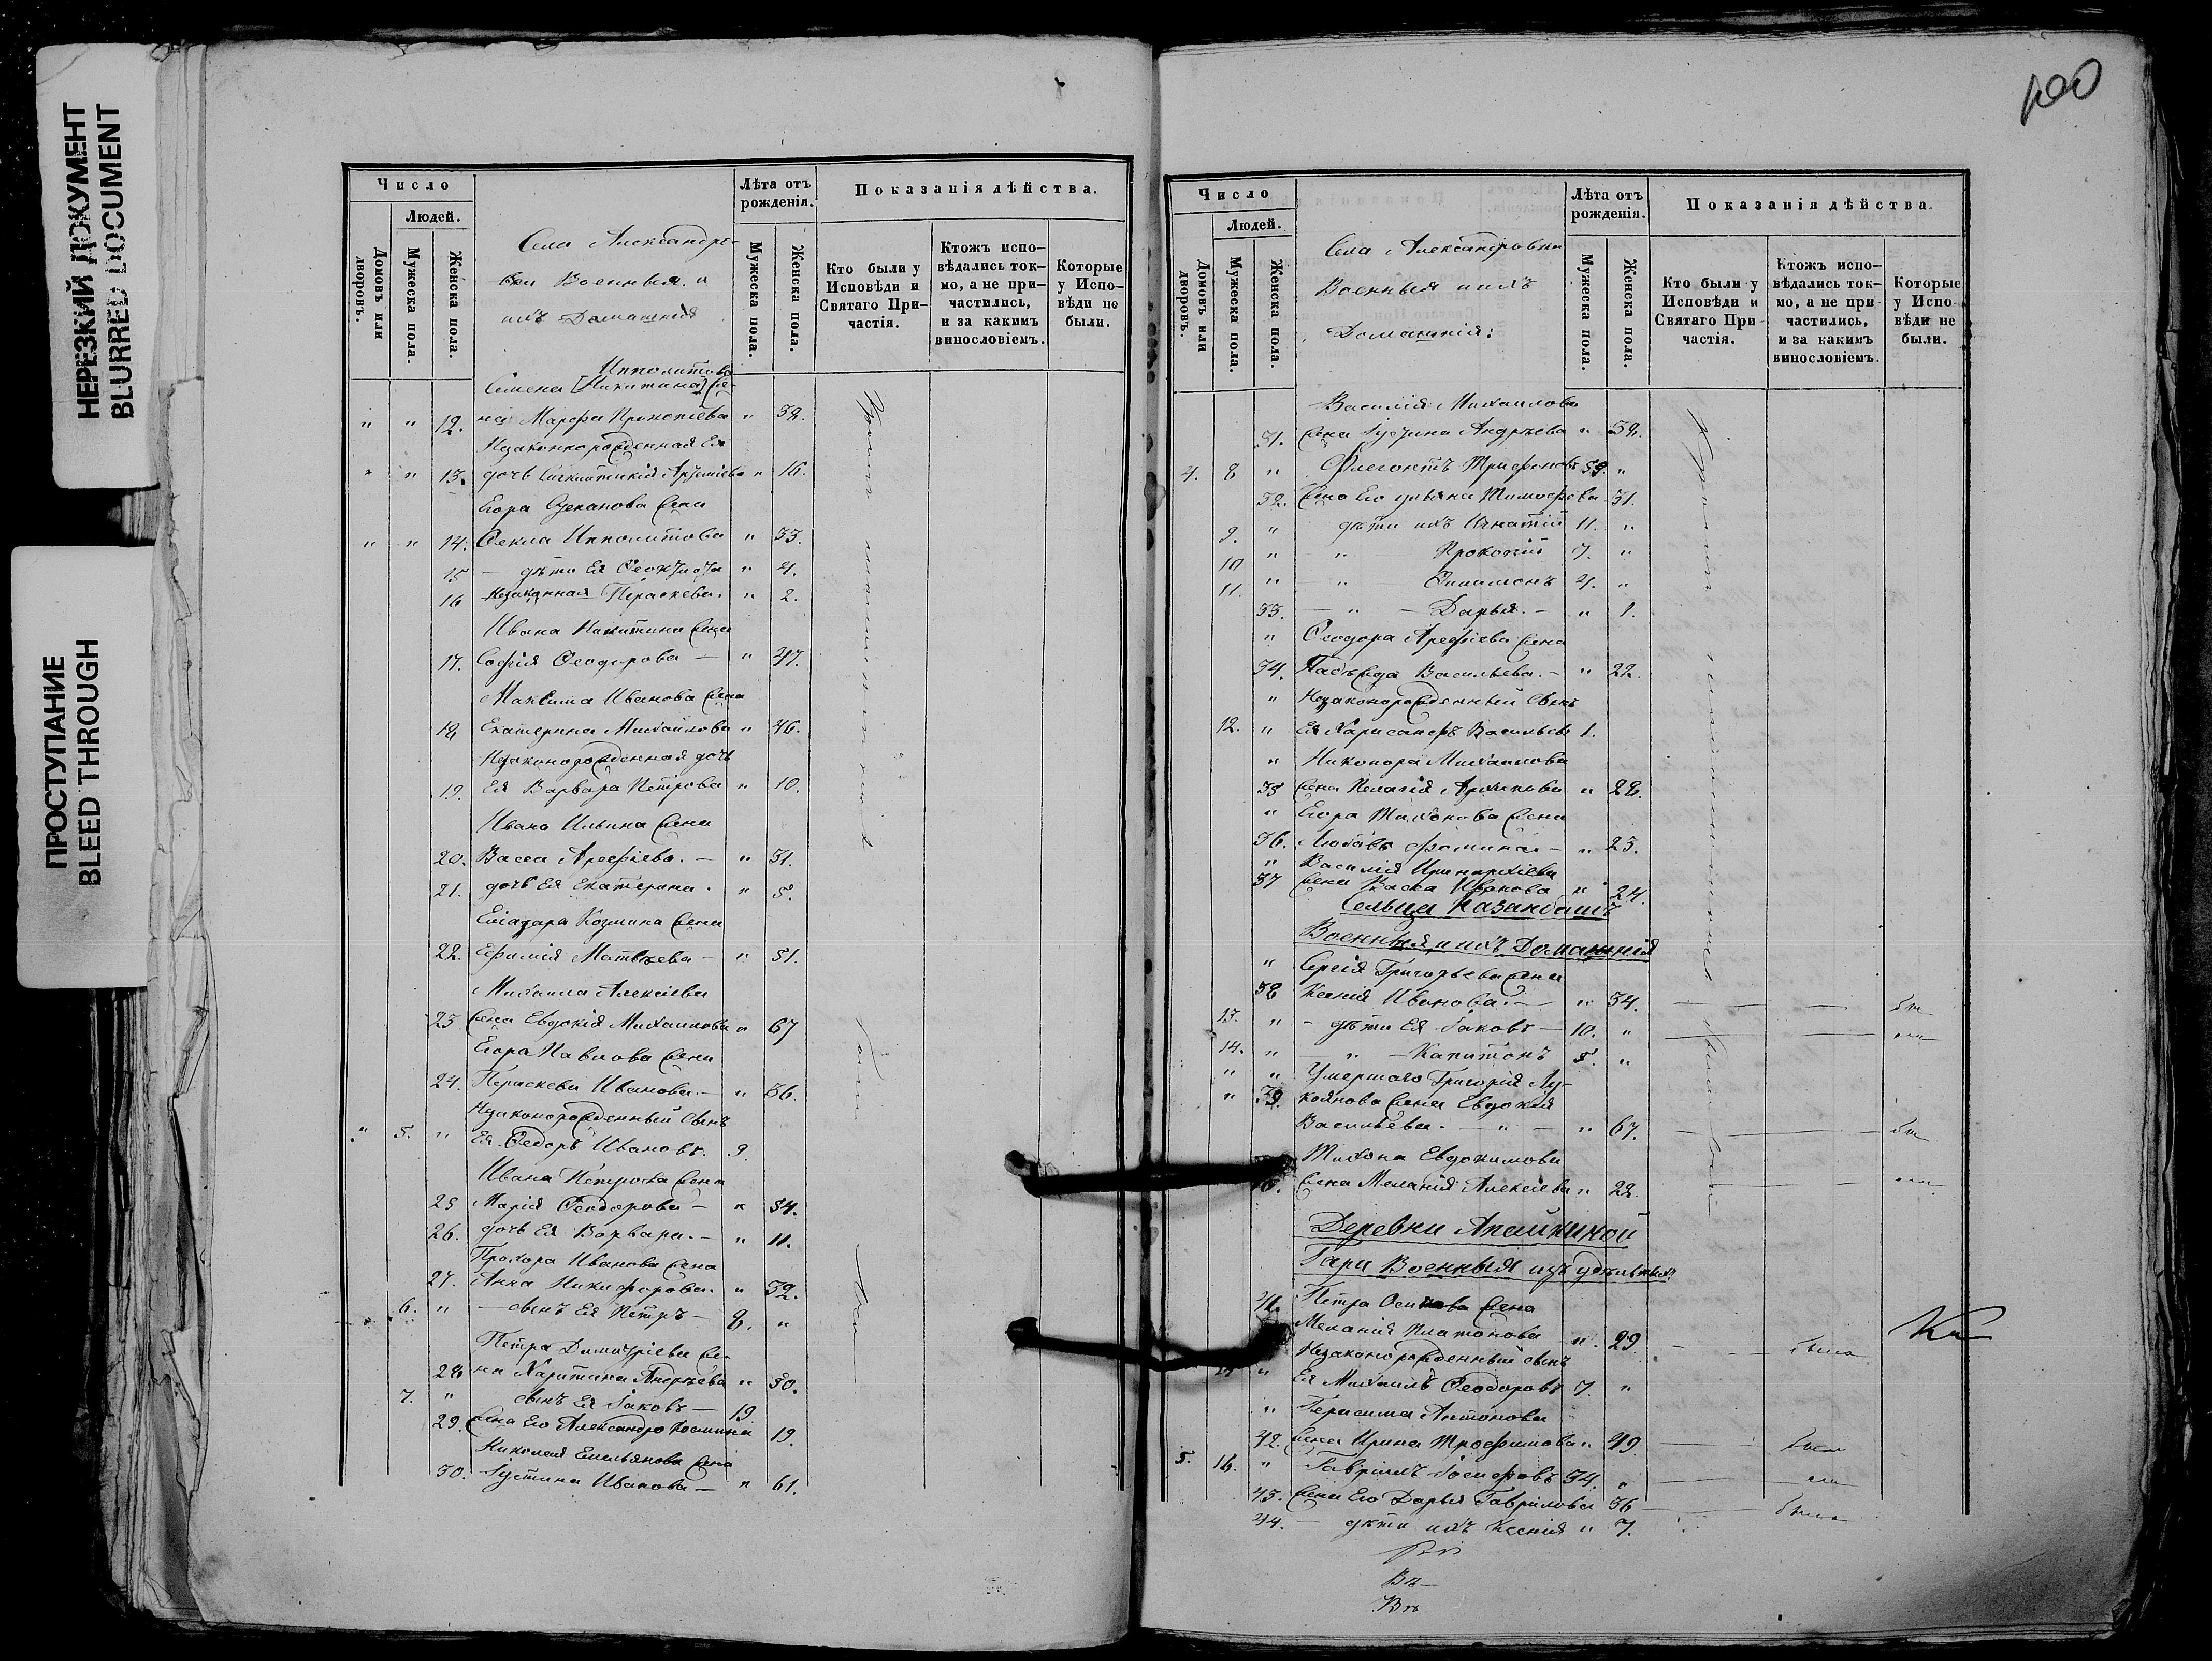 НЕРЕЗКИЙ ДОКУМЕНТ
BLURRED DOCUMENT
ПРОСТУПАНИЕ
BLEED THROUGH
Число
Людей.
Домовъ или дворовъ.
Мужеска пола.
Женска пола.
Села Александро-
вки Военныя и
ихъ Домашнія
Лѣта отъ рожденія.
Мужеска пола.
Женска пола.
Показанія дѣйства.
Кто были у Исповѣди и Святаго Причастія.
Ктожъ исповѣдались токмо, а не причастились, и за какимъ винословіемъ.
Которые у Исповѣди не были.
Ипполитова
Симена [Никитина] же-
" " 12. на Марфа Прокопіева " 38.
Незаконнорожденная Ея
" " 13. дочь " 16.
Егора Степанова жена
" " 14. Фекла Ипполитова " 33.
15 — дѣти Ея " 4.
16 Параскева. " 2.
Ивана Никитина жена
17. Софія Феодорова — " 47.
Максима Иванова жена
18 Екатерина Михайлова " 46.
Незаконорожденная дочь
19. Ея Варвара Петрова " 10.
Ивана Ильина жена
20. Васса Арефіева. — " 31.
21. дочь Ея Екатерина. " 5.
Козмина жена
22. Ефимія Матвѣева — " 51.
Михаила Алексіева
23 жена Евдокія Михайлова " 67
Егора Павлова жена
24. Параскева Иванова. — " 36.
Незаконорожденный сынъ
" 5. " Ея Федоръ Ивановъ. 9.
Ивана Петрова жена
25 Марія Феодорова — " 54.
26. дочь Ея Варвара. — " 11.
Прохора Иванова жена
27. Анна Никифорова. " 32.
6. " — сынъ Ея Петръ — 8. "
Петра Димитріева же-
28 на Харитина Андреева " 50.
7. " сынъ Ея Іаковъ — 19.
29. жена Его Александра Косьмина 19.
Николая Емельянова жена
30. Іустина Иванова — " 61.
100
Число
Людей.
Домовъ или дворовъ.
Мужеска пола.
Женска пола.
Села Александровки
Военныя и ихъ
Домашнія:
Лѣта отъ рожденія.
Мужеска пола.
Женска пола.
Показанія дѣйства.
Кто были у Исповѣди и Святаго Причастія.
Ктожъ исповѣдались токмо, а не причастились, и за какимъ винословіемъ.
Которые у Исповѣди не были.
Василія Михайлова
31. жена Іустина Андреева " 38.
4. 8 " Флегонтъ Трифоновъ 39. "
32. жена Его Ульяна Тимофеева 31.
9. " дѣти ихъ Игнатій 11. "
10 " " Прокопій 7. "
11. " — " — Филимонъ 4. "
33. — " — Дарья. — " 1.
" Феодора Арефіева жена
34. Надежда Васильева. — " 22.
" Незаконорожденный сынъ
12. " Ея Васильевъ 1.
" Никонора Михайлова
35 жена Пелагія Архипова " 28.
" Егора Тихонова жена
36. Любовь Фомина — " 23.
" Василія Иринархіева
37 жена Васса Иванова " 24.
Сельца Казанбашъ
Военныя, и ихъ Домашнія
" Сергія Григорьева жена
38 Ксенія Иванова. — " 34.
13. " — дѣти Ея Іаковъ — 10. "
14. " — " — Капитонъ 5. "
" " Умершаго Григорія Лу-
" 39. коянова жена Евдокія
Васильева. — " — " 67.
Тихона Евдокимова
жена Меланія Алексіева " 22.
Деревни Апайкиной
Гари Военныя изъ удѣльныхъ
41. Петра Осипова жена
Меланія Платонова " 29.
Незаконорожденный сынъ
" Ея Михаилъ Феодоровъ 7. "
" Герасима Антонова
42. жена Ирина Трофимова " 49.
5. 16. " Гавріилъ Іосифовъ 34. "
43. жена Его Дарья Гаврилова 36
44. — дѣти ихъ Ксенія " 7.